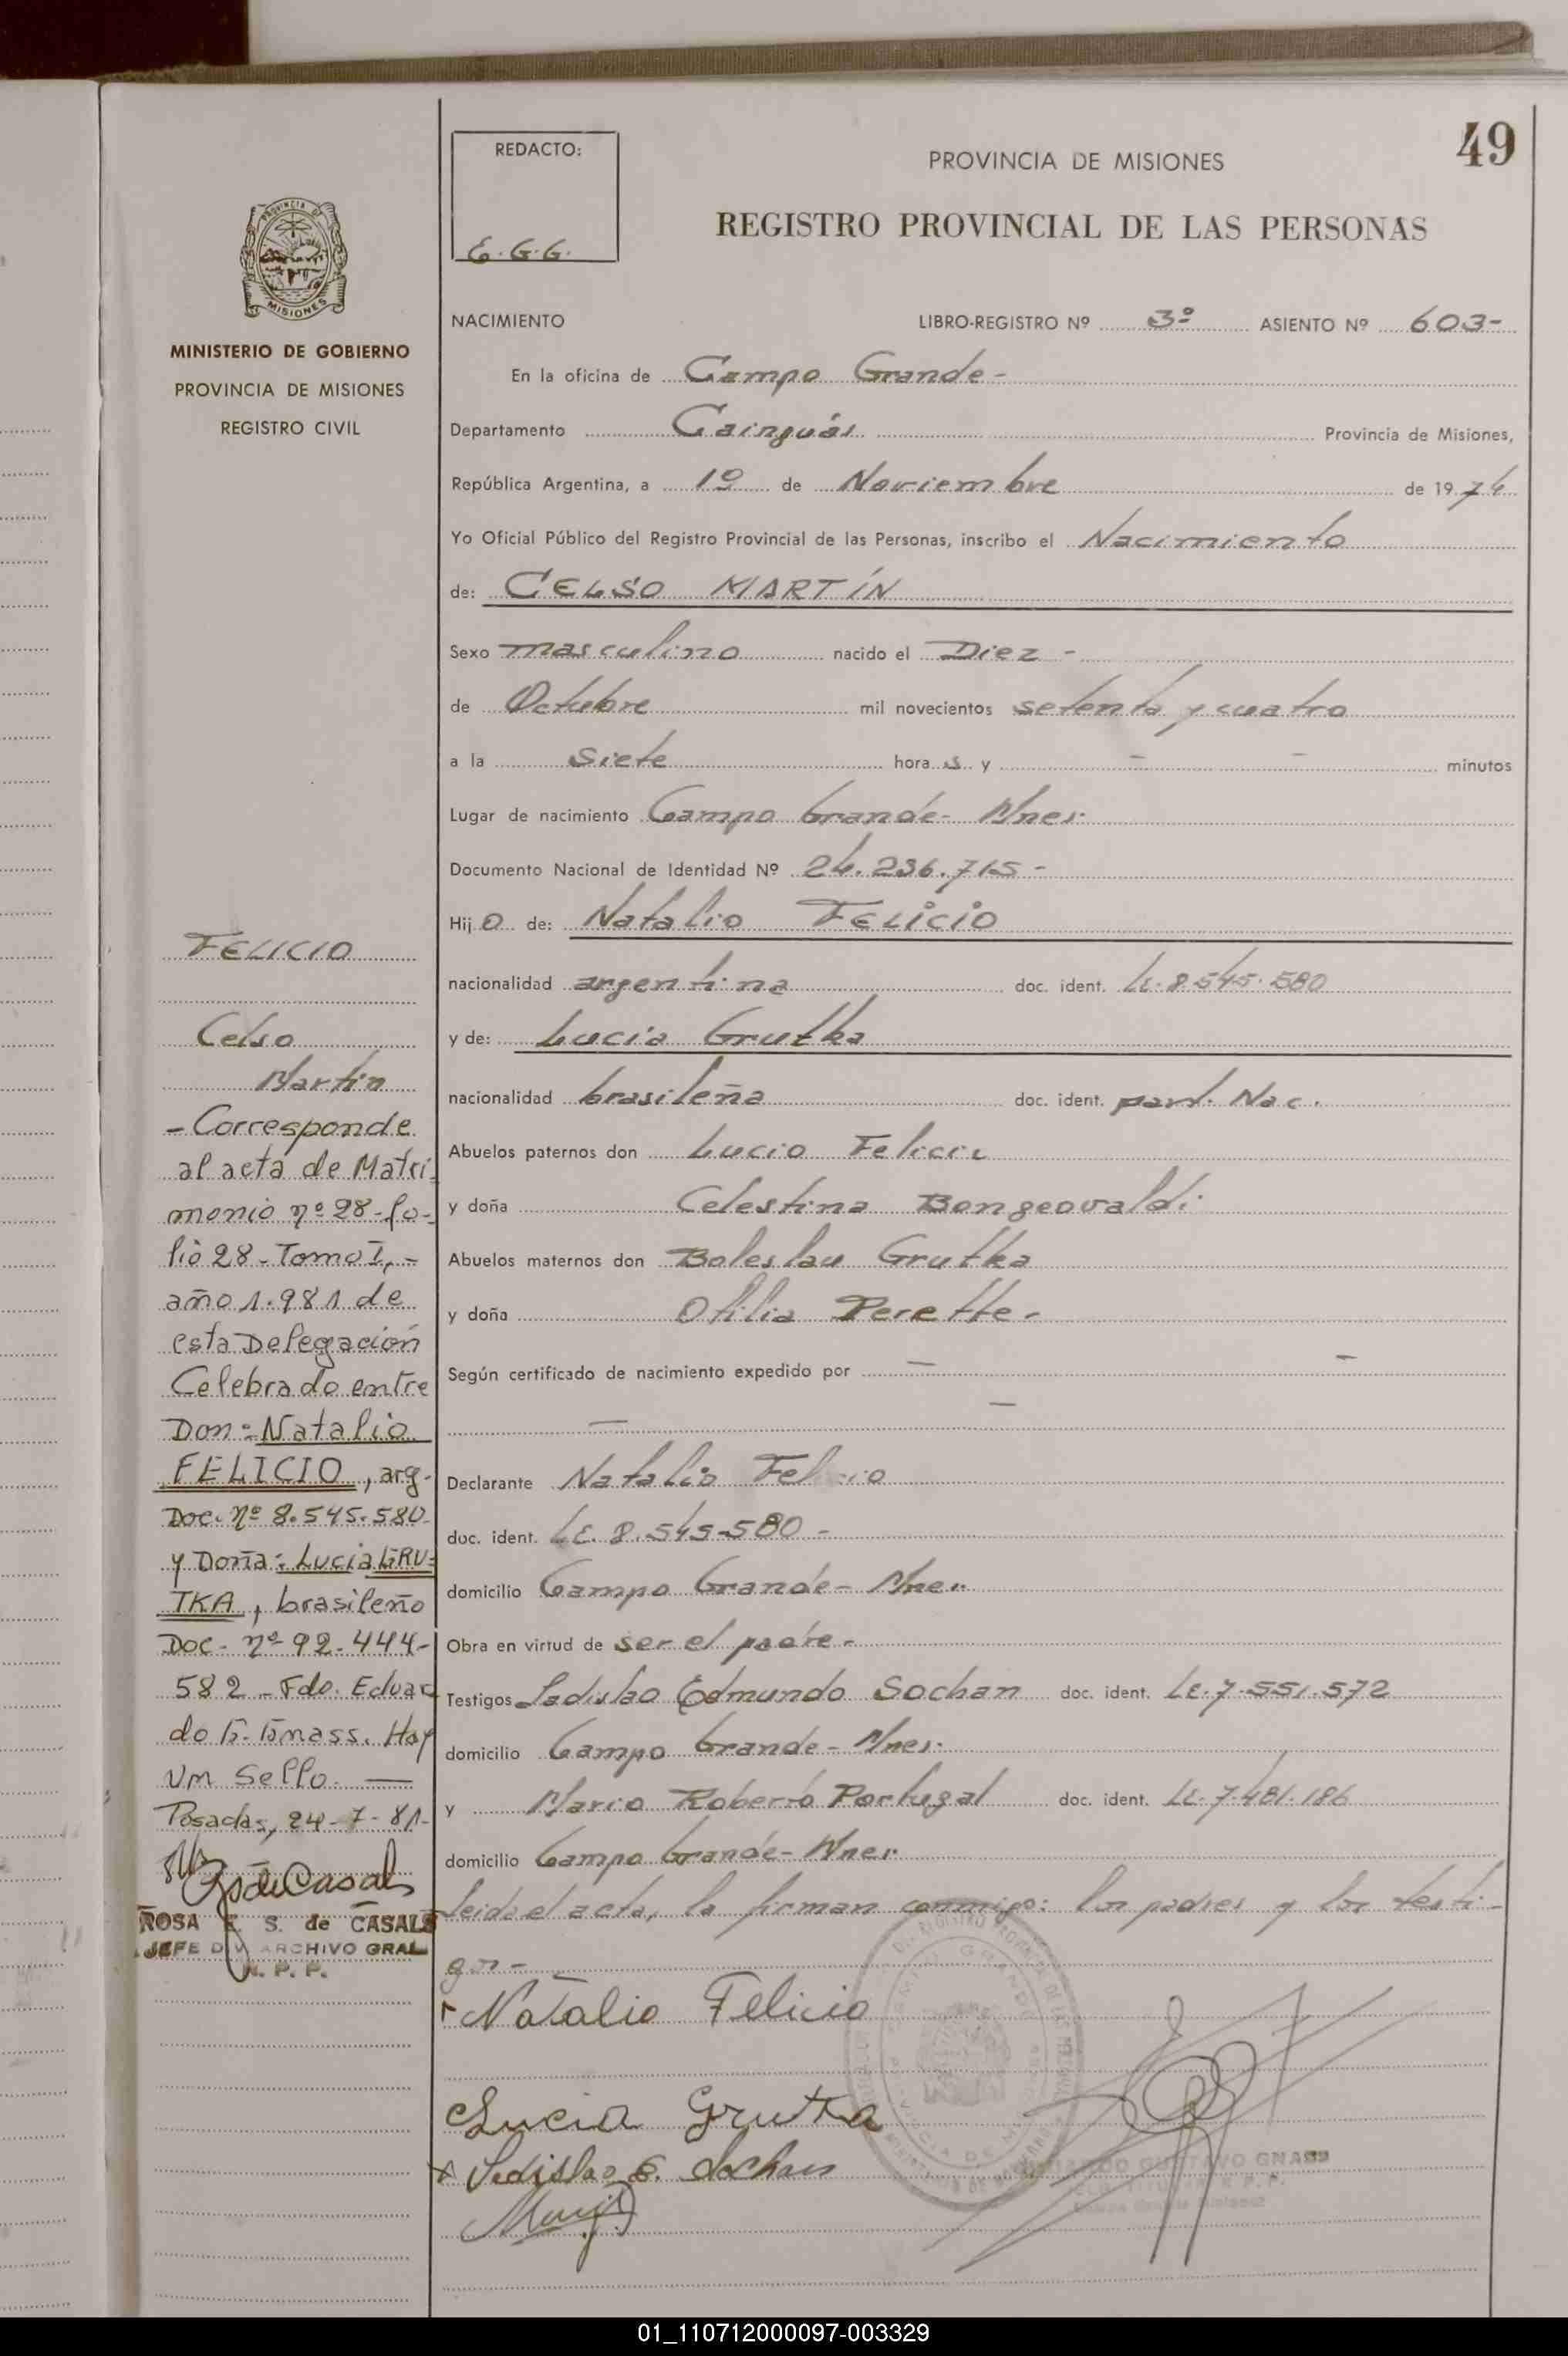 49
REDACTO:
E.G.G.
PROVINCIA DE MISIONES
REGISTRO PROVINCIAL DE LAS PERSONAS
PROVINCIA DE
MISIONES
MINISTERIO DE GOBIERNO
PROVINCIA DE MISIONES
REGISTRO CIVIL
NACIMIENTO LIBRO-REGISTRO Nº 3º ASIENTO Nº 603-
En la oficina de Campo Grande-
Departamento Cainguás Provincia de Misiones,
República Argentina, a 1º de Noviembre de 1974
Yo Oficial Público del Registro Provincial de las Personas, inscribo el Nacimiento
de: CELSO MARTÍN
Sexo masculino nacido el Diez -
de Octubre mil novecientos setenta y cuatro
a la siete hora s y - - minutos
Lugar de nacimiento Campo Grande- Mnes.
Documento Nacional de Identidad Nº 24.236.715-
Hij o de: Natalio FELICIO
nacionalidad argentina doc. ident. LE. 8.545.580
y de: Lucia Grutka
nacionalidad brasileña doc. ident. part. Nac.
Abuelos paternos don Lucio Felicio
y doña Celestina Bongeovaldi
Abuelos maternos don Boleslau Grutka
y doña Otilia Perette-
Según certificado de nacimiento expedido por — —
— —
Declarante Natalio Felicio
doc. ident. LE. 8.545-580 -
domicilio Campo Grande- Mnes.
Obra en virtud de ser el padre-
Testigos Ladislao Edmundo Sochan doc. ident. LE. 7.551.572
domicilio Campo Grande- Mnes.
y Mario Roberto Portugal doc. ident. LE. 7.481.186
domicilio Campo Grande- Mnes.
Leida el acta, la firman conmigo: los padres y los testi-
gos-
Natalio Felicio
Lucia Grutka
Ladislao E. Sochan
FELICIO
Celso
Martin
- Corresponde
al acta de Matri-
monio nº 28-fo-
lio 28-Tomo I,-
año 1.981 de
esta Delegación
Celebrado entre
Don: Natalio
FELICIO, arg-
Doc. Nº 8.545.580-
y Doña: Lucia GRU-
TKA, brasileño
Doc- nº 92-444-
582 - Fdo. Eduar
do G. Gnass. Hay
un Sello. —
Posadas, 24-7-81-
ROSA E. S. de CASALS
JEFE DIV ARCHIVO GRAL
R. P. P.
GUSTAVO GNASS
01_110712000097-003329